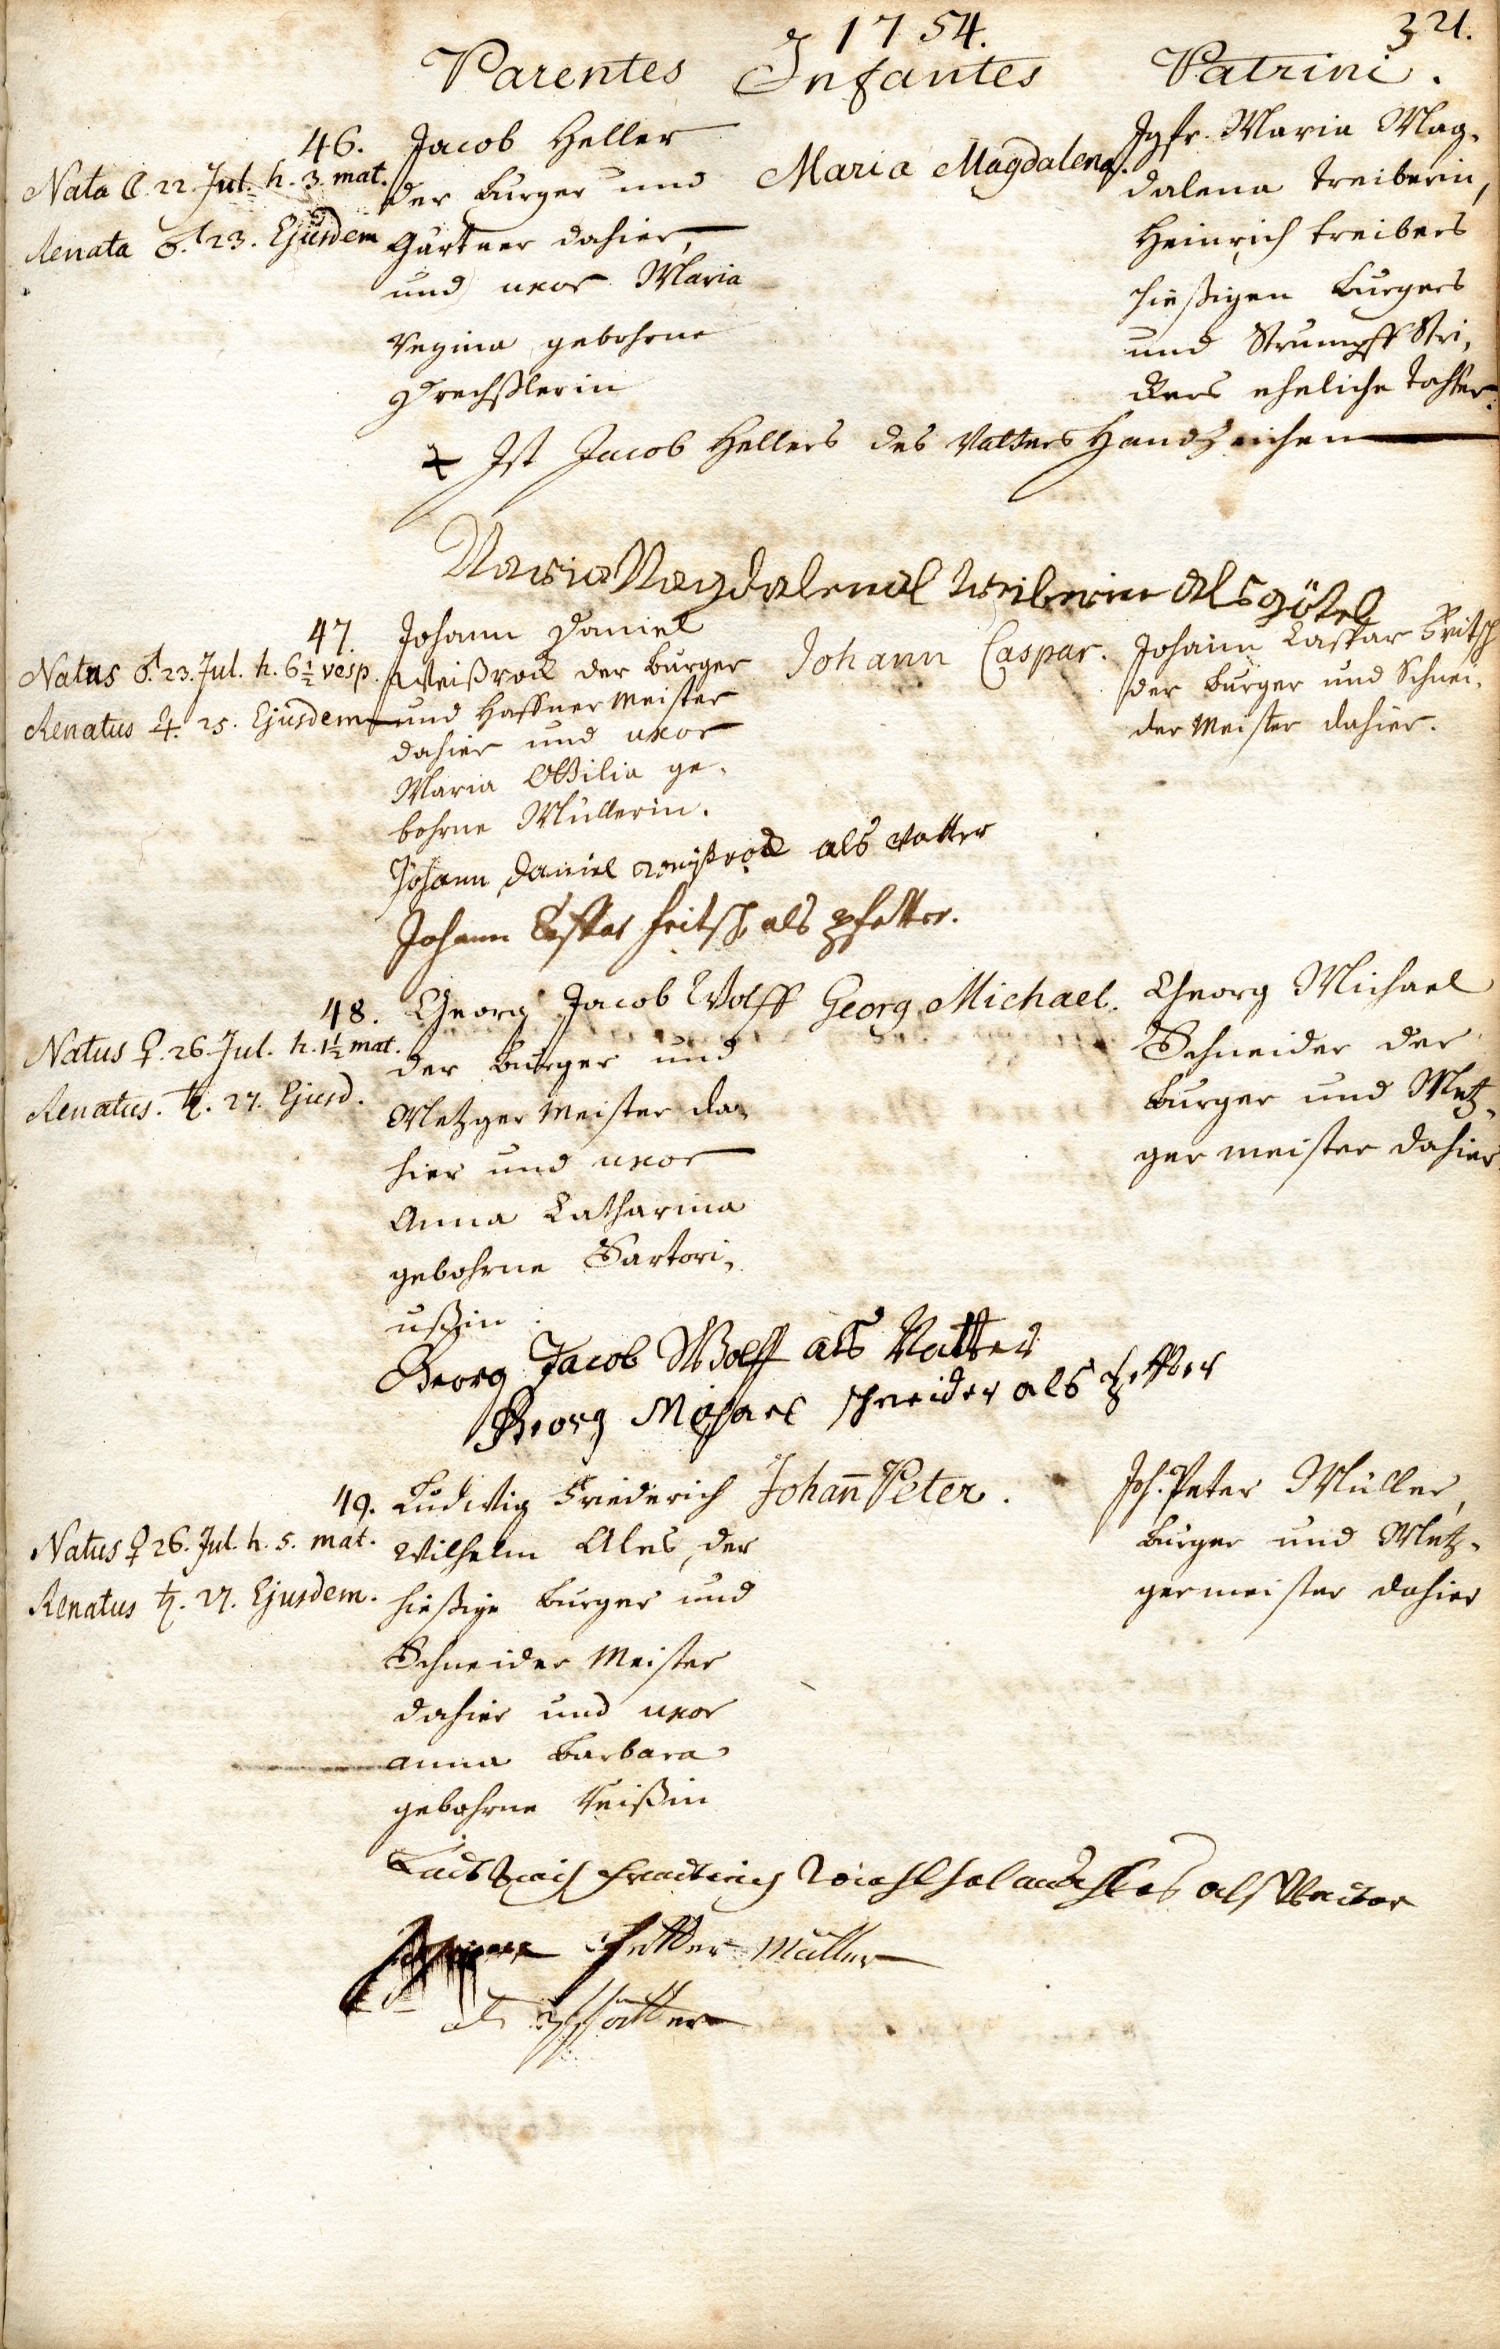 1754.
321.
Parentes Infantes Patrini.
46.
Nata ☾. 22. Jul. h. 3. mat.
Renata ♂. 23. Ejusdem
Jacob Heller
der burger und
Gärtner dahier,
und uxor Maria
Regina gebohrne
Drechßlerin
Maria Magdalena.
Jgfr. Maria Mag-
dalena Treiberin,
Heinrich Treibers
hießigen burgers
und Strumpff Stri-
ckers eheliche Tochter.
Ist Jacob Hellers des Vatters Handzeichen
Maria Magdalena Treiberin als götel
47.
Natus ♂. 23. Jul. h. 6½ vesp.
Renatus ♃. 25. Ejusdem
Johann Daniel
Weißrock der burger
und Haffner Meister
dahier und uxor
Maria Ottilia ge-
bohrne Müllerin.
Johann Caspar.
Johann Caspar Fritsch
der burger und Schnei-
der Meister dahier.
Johann Daniel weißrock als vatter
Johann Caspar fritsch als pfetter.
48.
Natus ♀. 26. Jul. h. 1½ mat.
Renatus. ♄. 27. Ejusd.
Georg Jacob Wolff
der burger und
Metzger Meister da-
hier und uxor
Anna Catharina
gebohrne Sartori-
ußin.
Georg Michael.
Georg Michael
Schneider der
burger und Metz-
ger meister dahier
Georg Jacob Wolff als Vatter
Georg Michael schneider als Pfetter
49.
Natus ♀ 26. Jul. h. 5. mat.
Renatus ♄. 27. Ejusdem.
Ludwig Friederich
Wilhelm Ales, der
hießige burger und
Schneider Meister
dahier und uxor
anna barbara
gebohrne Reißin
Johan̄ Peter.
Joh. Peter Müller,
burger und Metz-
germeister dahier
als Vatter
Petter Müller
als Pfetter